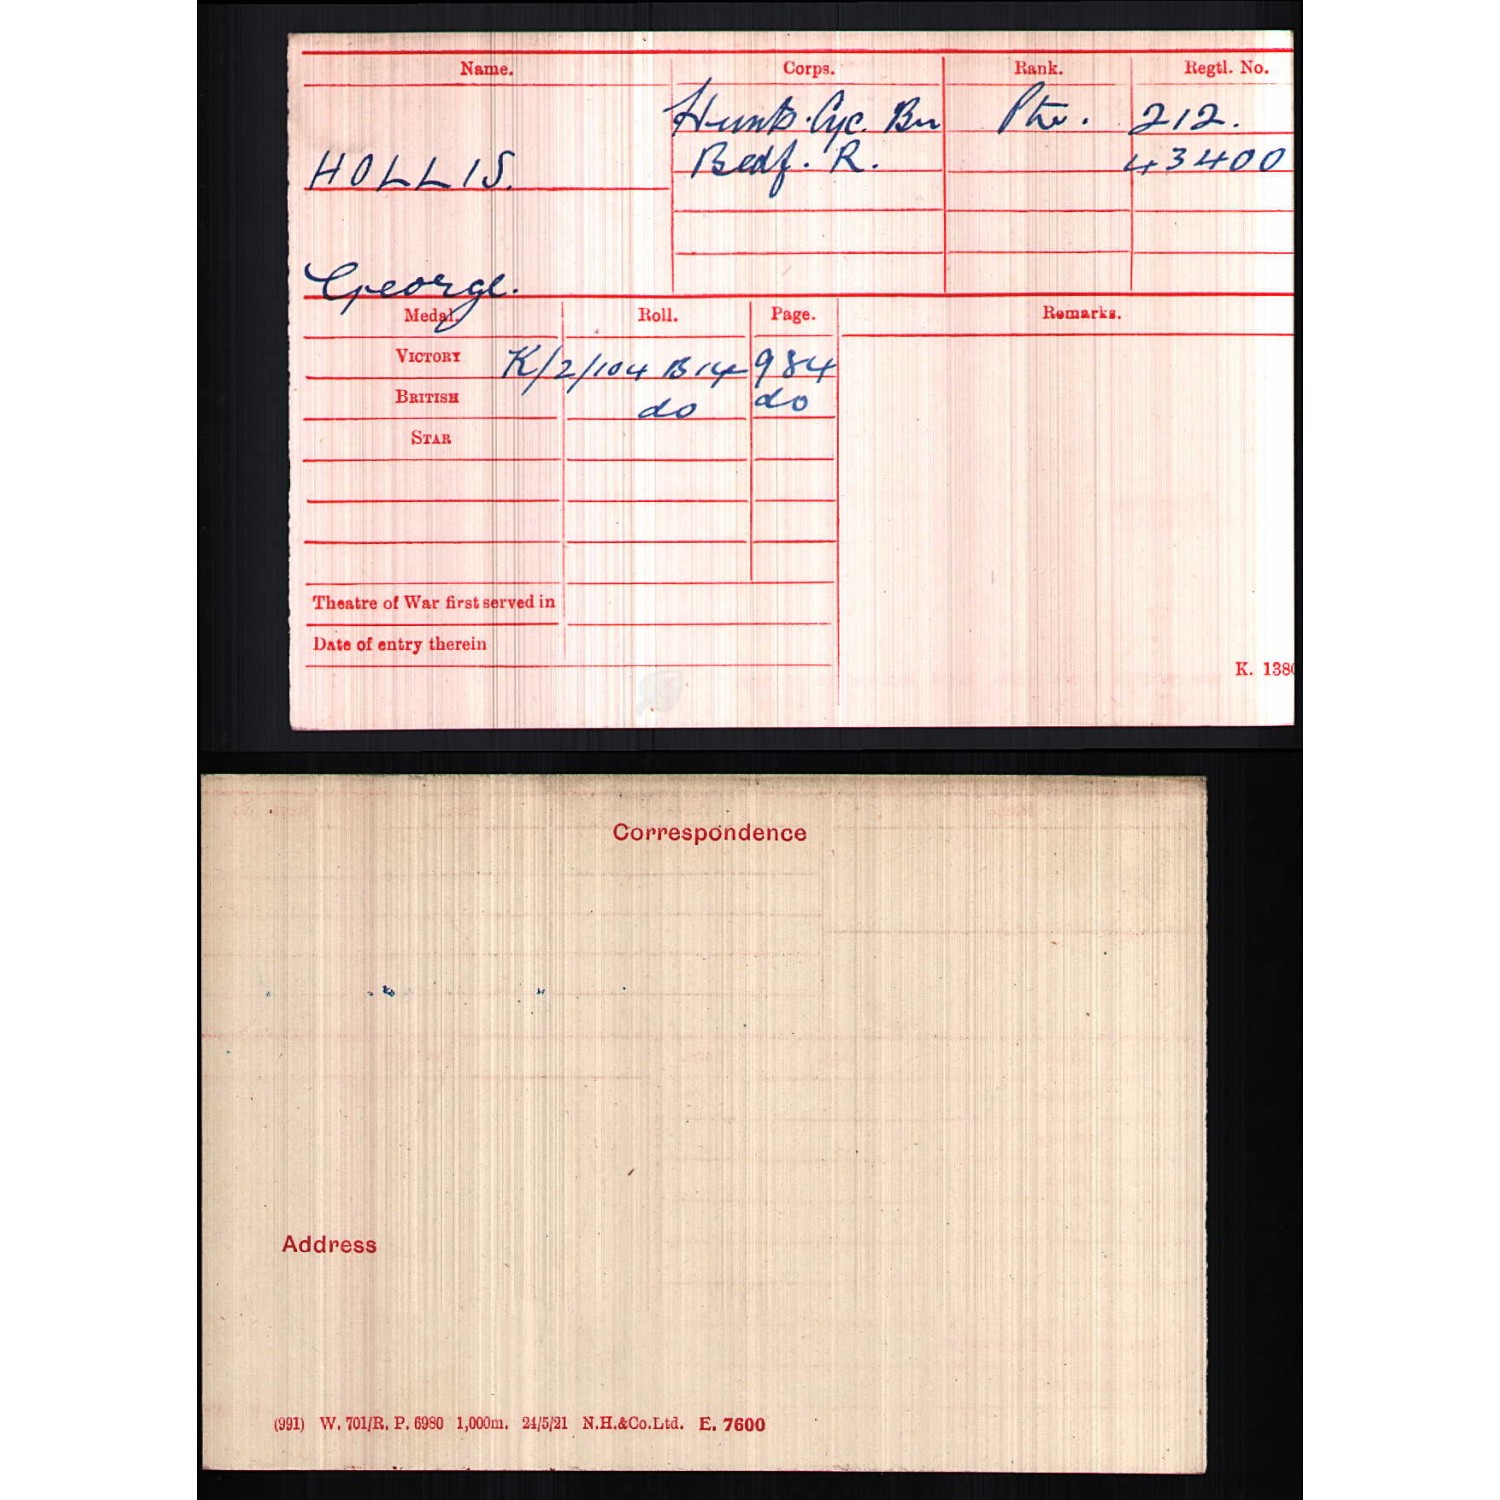 Name. Corps. Rank. Regtl. No.
Hunts. Cyc. Bn Pte. 212.
HOLLIS. Bedf. R. 43400
George.
Medal. Roll. Page. Remarks.
VICTORY K/2/104 B14 984
BRITISH do do
STAR
Theatre of War first served in
Date of entry therein
K. 1380
Correspondence
Address
(991) W. 701/R. P. 6980 1,000m. 24/5/21 N.H.&Co.Ltd. E. 7600